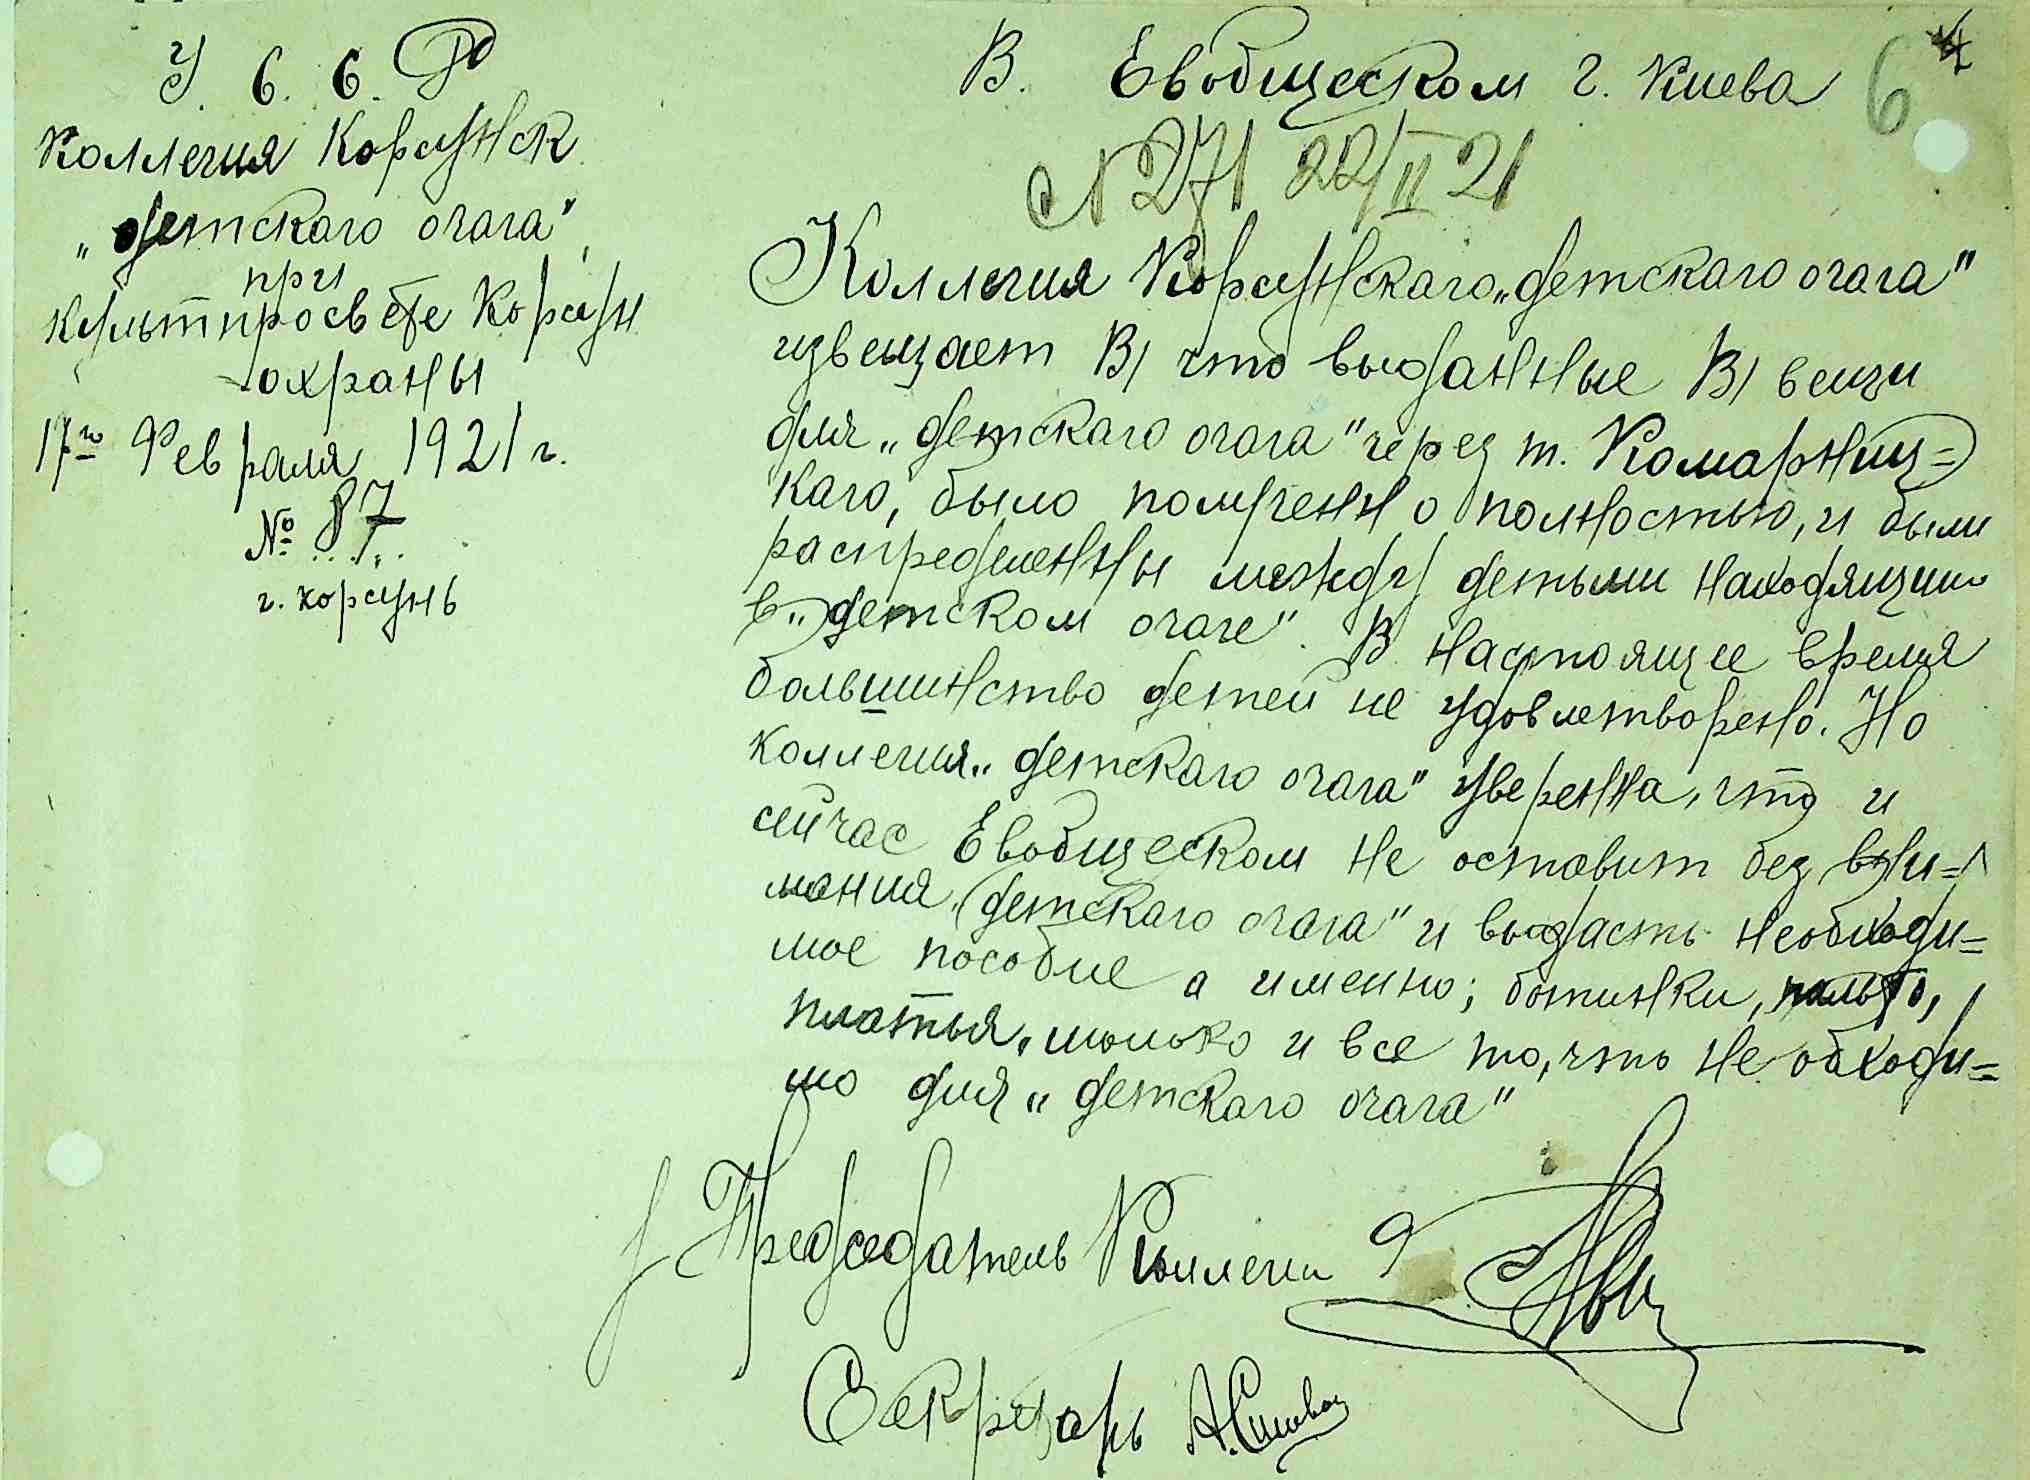 У. С. С. Р
Коллегия Корсунск.
„детскаго очага"
при
культпросвете Корсун
охраны
17го Февраля 1921 г.
№ 87
г. Корсунь
В. Евобщеском г. Киева
6
N 271 22/II 21
Коллегия Корсунскаго „детскаго очага"
извещает В/ что выданные В/ вещи
для „детскаго очага" через т. Комарниц=
каго, было полученно полностью, и были
распределенны между детьми находящими
в „детском очаге". В настоящее время
большинство детей не удовлетворено. Но
коллегия „детскаго очага" уверенна, что и
сейчас Евобщеском не оставит без вни=
мания „детскаго очага" и выдасть необходи=
мое пособие а именно; ботинки, пальто,
платья, молоко и все то, что необходи=
мо для „детскаго очага"
Председатель Коллеги
Секретарь А.